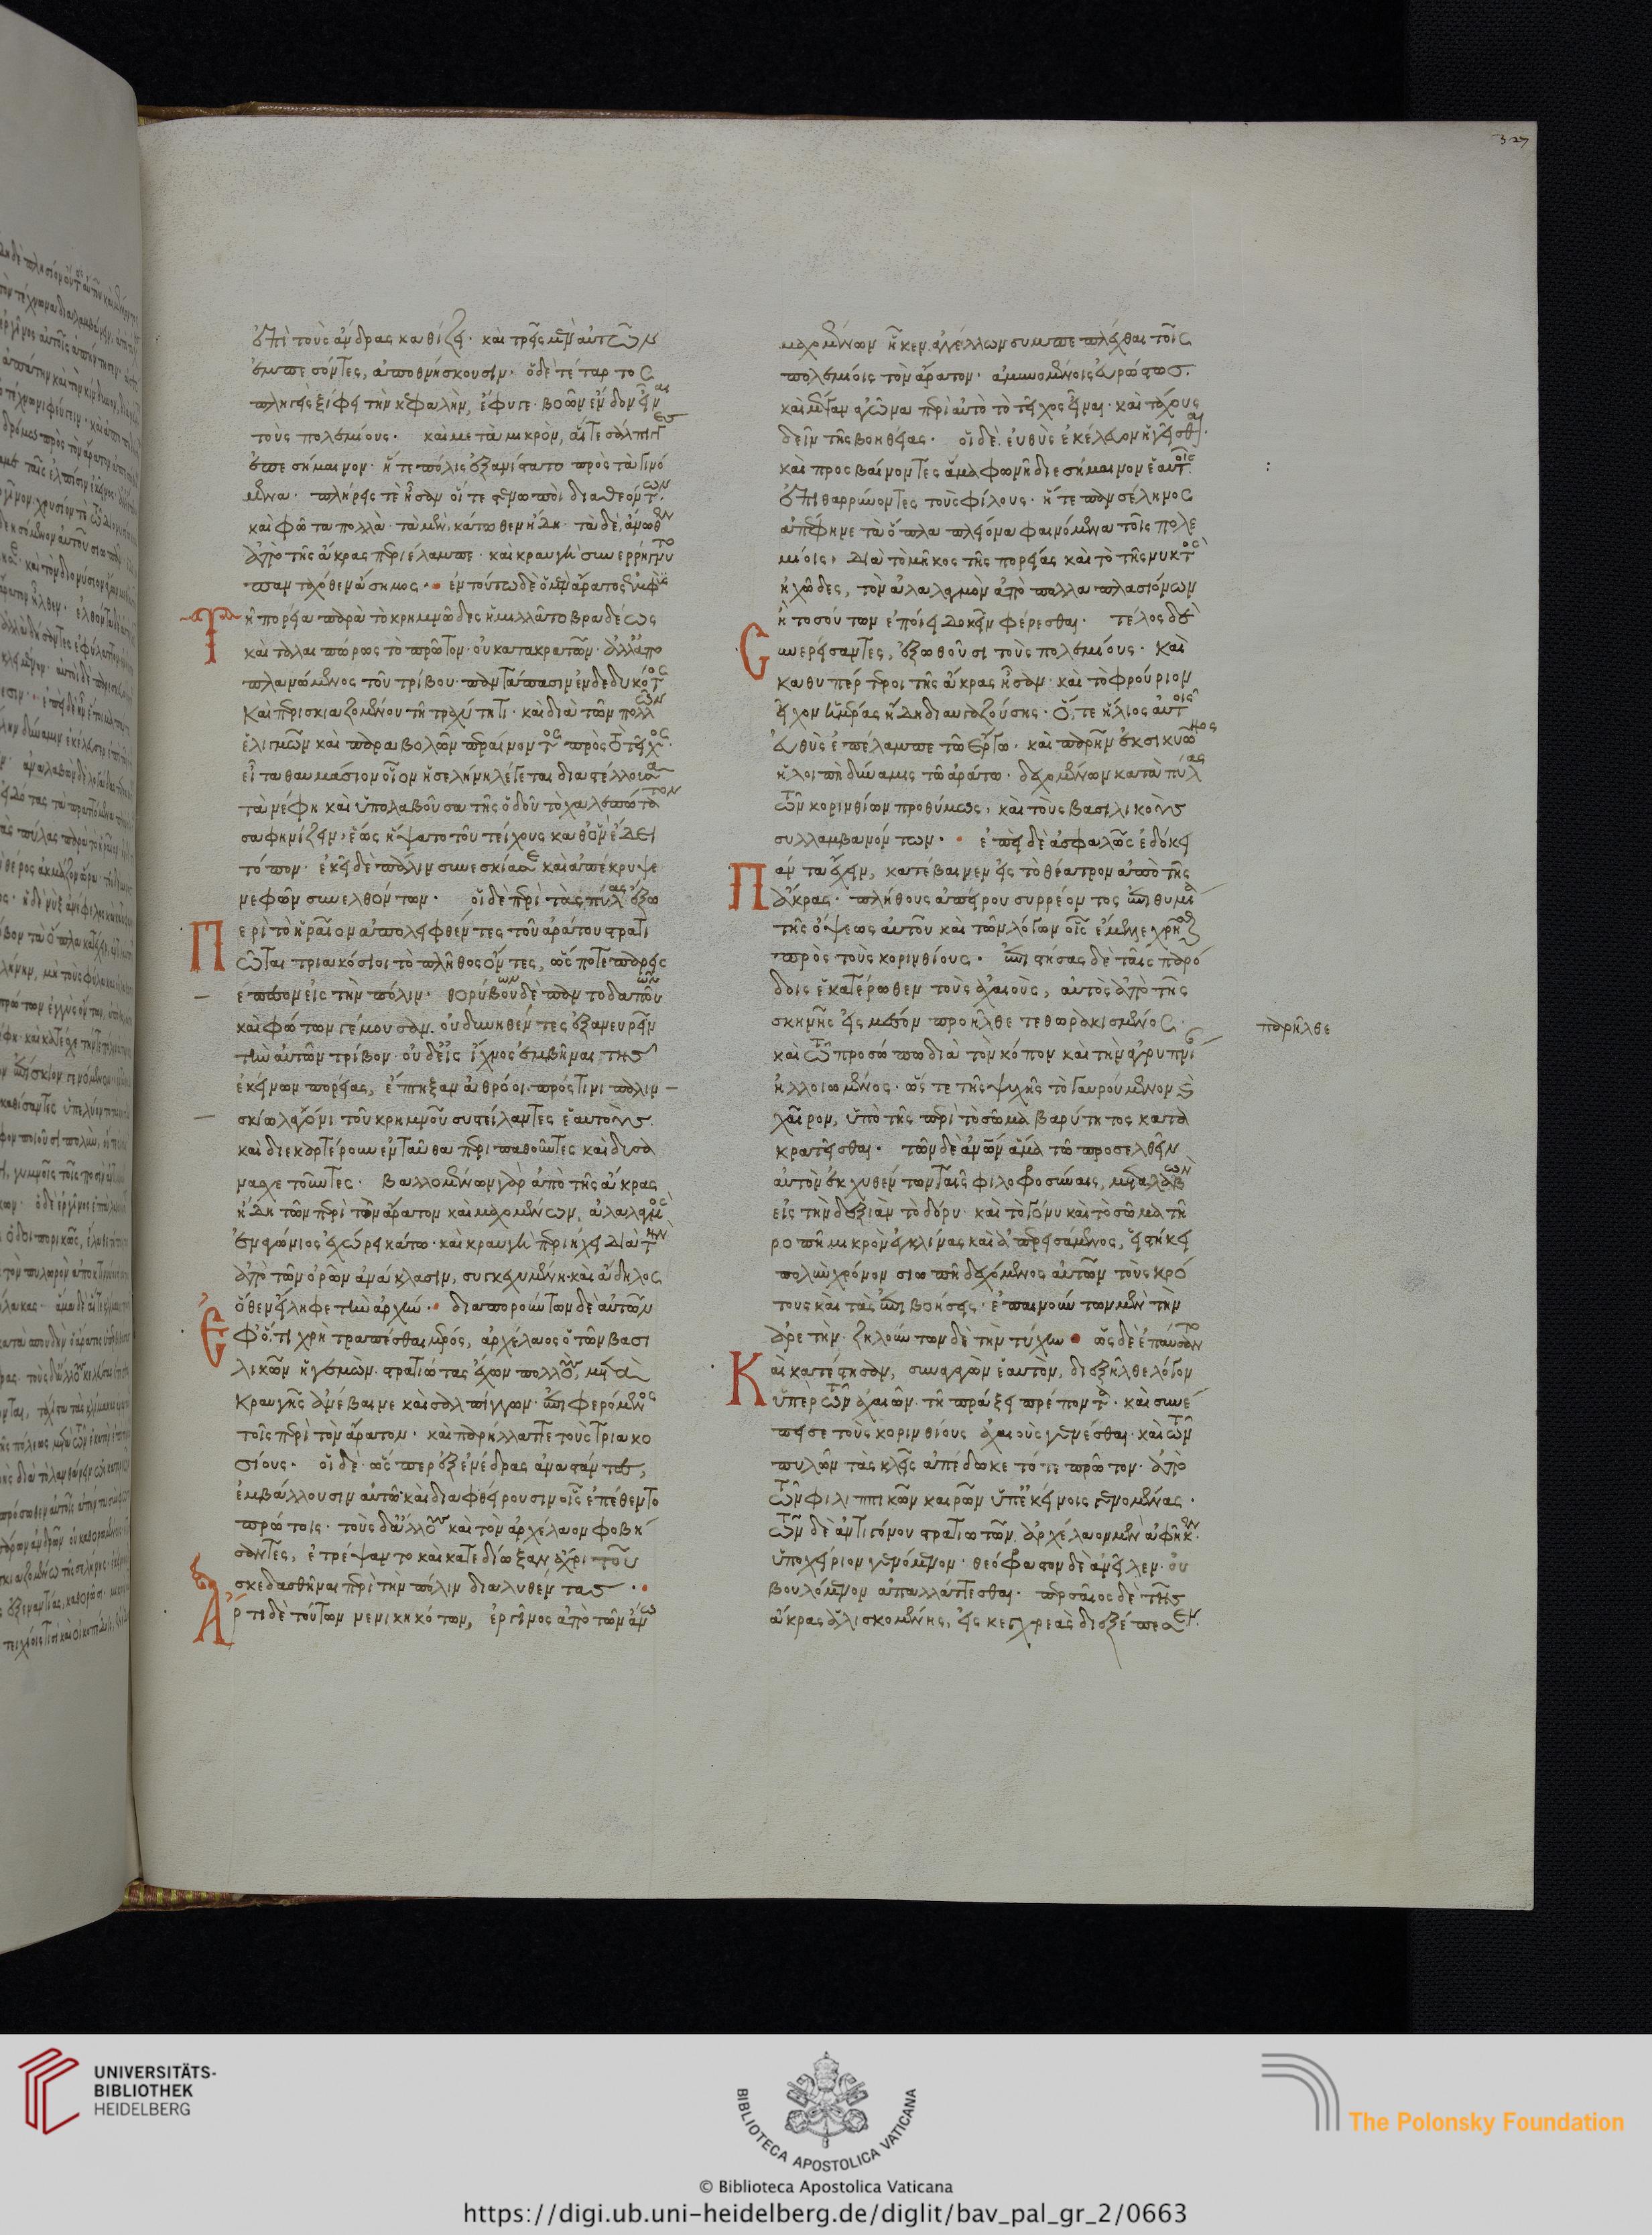 ἐπὶ τοὺς ἄνδρας καθίζει· καὶ τρεῖς μὲν αὐτῶν
ἐμπεσόντες, ἀποθνήσκουσιν· ὁ δὲ τέταρτος
πληγεὶς ξίφει τὴν κεφαλὴν, ἔφυγε· βοῶν ἔνδον εἶναι
τοὺς πολεμίους· καὶ μετὰ μικρὸν, αἵ τε σάλπιγγες
ἐπεσήμαινον· ἥ τε πόλις ἐξανίστατο πρὸς τὰ γινό
μενα· πλήρεις τὲ ἦσαν οἵ τε στενωποὶ διαθεόντων·
καὶ φῶτα πολλὰ· τὰ μὲν, κάτωθεν ἤδη· τὰ δὲ, ἄνωθεν
ἀπὸ τῆς ἄκρας περιέλαμπε· καὶ κραυγὴ συνερρήγνυτο
πανταχόθεν ἄσημος· ἐν τούτω δὲ ὁ μὲν ἄρατος ἐμφὺς
Τῆ πορεία παρὰ τὸ κρημνῶδες ἡμιλλᾶτο βραδέως
καὶ ταλαιπώρως τὸ πρῶτον· οὐ κατακρατῶν· ἀλλ' ἀπο
πλανώμενος τοῦ τρίβου· παντάπασιν ἐνδεδυκότος
καὶ περισκιαζομένου τῆ τραχύτητι· καὶ διὰ τῶν πολλῶν
ἑλιγμῶν καὶ παραβολῶν περαίνοντος πρὸς τὸ τεῖχος·
εἶτα θαυμάσιον οἷον ἡ σελήνη λέγεται διαστέλλουσα
τὰ νέφη καὶ ὑπολαβοῦσα τῆς ὁδοῦ τὸ χαλεπώτατον
σαφηνίζειν, ἕως ἥψατο τοῦ τείχους καθ' ὃν ἔδει
τόπον· ἐκεῖ δὲ πάλιν συνεσκίασε καὶ ἀπέκρυψε
νεφῶν συνελθόντων· οἱ δὲ περὶ τὰς πύλας ἔξω
Περὶ τὸ ἡραῖον ἀπολειφθέντες τοῦ ἀράτου στρατι
ῶται τριακόσιοι τὸ πλῆθος ὄντες, ὥς ποτε παρεισ
έπεσον εἰς τὴν πόλιν· θορύβων δὲ παντοδαπῶν
καὶ φώτων γέμουσαν· οὐ δυνηθέντες ἐξανευρεῖν
τὴν αὐτῶν τρίβον· οὐδ' εἰς ἴχνος ἐμβῆναι τῆς
ἐκείνων πορείας, ἔπτηξαν ἀθρόοι· πρός τινι παλιν
σκίω λαγόνι τοῦ κρημνοῦ συστείλαντες ἑαυτοὺς·
καὶ διεκαρτέρουν ἐνταῦθα περιπαθοῦντες καὶ δυσα
νασχετοῦντες· βαλλομένων γὰρ ἀπὸ τῆς ἄκρας
ἤδη τῶν περὶ τὸν ἄρατον καὶ μαχομένων, ἀλαλαγμὸς
ἐναγώνιος ἐχώρει κάτω· καὶ κραυγὴ περιήχει διὰ τὴν
ἀπὸ τῶν ὀρῶν ἀνάκλασιν, συγκεχυμένη· καὶ ἄδηλος
ὅθεν εἴληφε τὴν ἀρχήν· διαπορούντων δὲ αὐτῶν
Ἐφ' ὅ,τι χρὴ τραπέσθαι μέρος, ἀρχέλαος ὁ τῶν βασι
λικῶν ἡγεμὼν· στρατιώτας ἔχων πολλοὺς, μετὰ
κραυγῆς ἀνέβαινε καὶ σαλπίγγων· ἐπιφερόμενος
τοῖς περὶ τὸν ἄρατον· καὶ παρήλλαττε τοὺς τριακο
σίους· οἱ δὲ· ὥσπερ ἐξ ἐνέδρας ἀναστάντες,
ἐμβάλλουσιν αὐτῶ· καὶ διαφθείρουσιν οἷς ἐπέθεντο
πρώτοις· τοὺς δ' ἄλλους καὶ τὸν ἀρχέλαον φοβή
σαντες, ἐτρέψαντο καὶ κατεδίωξαν ἄχρι τοῦ
σκεδασθῆναι περὶ τὴν πόλιν διαλυθέντας·
Ἄρτι δὲ τούτων νενικηκότων, ἐργῖνος ἀπὸ τῶν ἄνω
μαχομένων ἧκεν ἀγγέλλων συμπεπλέχθαι τοῖς
πολεμίοις τὸν ἄρατον· ἀμυνομένοις εὐρώστως·
καὶ μέγαν ἀγῶνα περὶ αὐτὸ τὸ τεῖχος εἶναι· καὶ τάχους
δεῖν τῆς βοηθείας· οἱ δὲ· εὐθὺς ἐκέλευον ἡγεῖσθαι·
καὶ προσβαίνοντες ἅμα φωνῆ διεσήμαινον ἑαυτοῖς
ἐπιθαρρύνοντες τοὺς φίλους· ἥ τε πανσέληνος
ἀπέφηνε τὰ ὅπλα πλείονα φαινόμενα τοῖς πολε
μίοις, διὰ τὸ μῆκος τῆς πορείας καὶ τὸ τῆς νυκτὸς
ἠχῶδες, τὸν ἀλαλαγμὸν ἀπὸ πολλαπλασιόνων
ἢ τοσούτων ἐποίει δοκεῖν φέρεσθαι· τέλος δὲ
Συνερείσαντες, ἐξωθοῦσι τοὺς πολεμίους· καὶ
καθυπέρτεροι τῆς ἄκρας ἦσαν· καὶ τὸ φρούριον
εἶχον ἡμέρας ἤδη διαυγαζούσης· ὅ, τε ἥλιος αὐτοῖς
εὐθὺς ἐπέλαμπε τῶ ἔργω· καὶ παρῆν ἐκ σικυῶνος
ἡ λοιπὴ δύναμις τῶ ἀράτω· δεχομένων κατὰ πύλας
τῶν κορινθίων προθύμως, καὶ τοὺς βασιλικοὺς
συλλαμβανόντων· ἐπεὶ δὲ ἀσφαλῶς ἐδόκει
Πάντα ἔχειν, κατέβαινεν εἰς τὸ θέατρον ἀπὸ τῆς
ἄκρας· πλήθους ἀπείρου συρρέοντος ἐπιθυμία
τῆς ὄψεως αὐτοῦ καὶ τῶν λόγων οἷς ἔμελλε χρῆσθαι
πρὸς τοὺς κορινθίους· ἐπιστήσας δὲ ταῖς παρό
δοις ἑκατέρωθεν τοὺς ἀχαιοὺς, αὐτὸς ἀπὸ τῆς
σκηνῆς εἰς μέσον προῆλθε τεθωρακισμένος·
παρῆλθε
καὶ τῶ προσώπω διὰ τὸν κόπον καὶ τὴν ἀγρυπνί
ἠλλοιωμένος· ὥστε τῆς ψυχῆς τὸ γαυρούμενον καὶ
χαῖρον, ὑπὸ τῆς περὶ τὸ σῶμα βαρύτητος κατα
κρατεῖσθαι· τῶν δὲ ἀνθρώπων ἅμα τῶ προσελθεῖν
αὐτὸν ἐκχυθέντων ταῖς φιλοφροσύναις, μεταλαβὼν
εἰς τὴν δεξιὰν τὸ δόρυ· καὶ τὸ γόνυ καὶ τὸ σῶμα τῆ
ροπῆ μικρὸν ἐγκλίνας καὶ ἀπερεισάμενος, εἱστήκει
πολὺν χρόνον σιωπῆ δεχόμενος αὐτῶν τοὺς κρό
τους καὶ τὰς ἐπιβοήσεις· ἐπαινούντων μὲν τὴν
ἀρετὴν· ζηλούντων δὲ τὴν τύχην· ὡς δὲ ἐπαύσαντο
Καὶ κατέστησαν, συναγαγὼν ἑαυτὸν, διεξῆλθε λόγον
ὑπὲρ τῶν ἀχαιῶν· τῆ πράξει πρέποντα· καὶ συνέ
πεισε τοὺς κορινθίους ἀχαιοὺς γενέσθαι· καὶ τῶν
πυλῶν τὰς κλεῖς ἀπέδωκε τότε πρῶτον· ἀπὸ
τῶν φιλιππικῶν καιρῶν ὑπ' ἐκείνοις γενομένας·
τῶν δὲ ἀντιγόνου στρατιωτῶν· ἀρχέλαον μὲν ἀφῆκεν·
ὑποχείριον γενόμενον· θεόφραστον δὲ ἀνεῖλεν· οὐ
βουλόμενον ἀπαλλάττεσθαι· περσαῖος δὲ τῆς
ἄκρας ἁλισκομένης, εἰς κεγχρεὰς διεξέπεσεν·
327
UNIVERSITÄTS-
BIBLIOTHEK
HEIDELBERG
BIBLIOTECA APOSTOLICA VATICANA
The Polonsky Foundation
© Biblioteca Apostolica Vaticana
https://digi.ub.uni-heidelberg.de/diglit/bav_pal_gr_2/0663